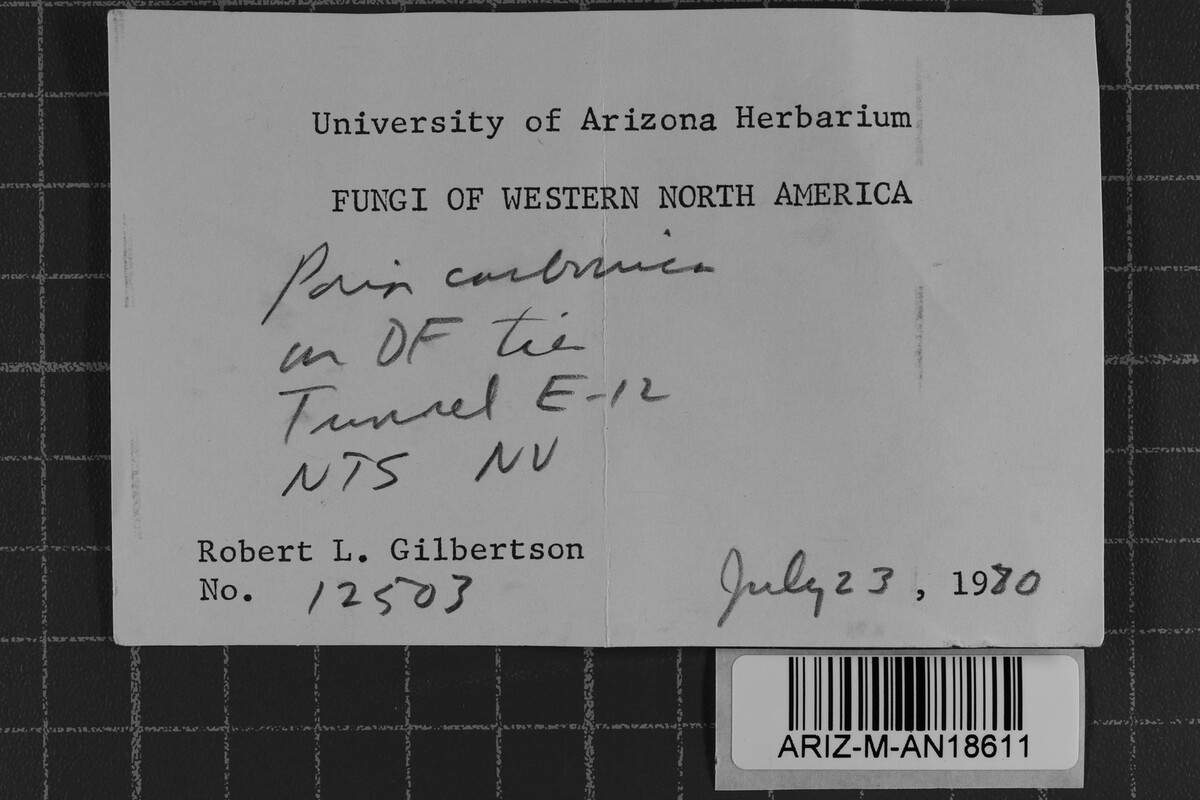 University of Arizona Herbarium
FUNGI OF WESTERN NORTH AMERICA
Poria carbonica
on DF tie
Tunnel E-12
NTS NV
Robert L. Gilbertson
No. 12503
July 23, 1980
ARIZ-M-AN18611